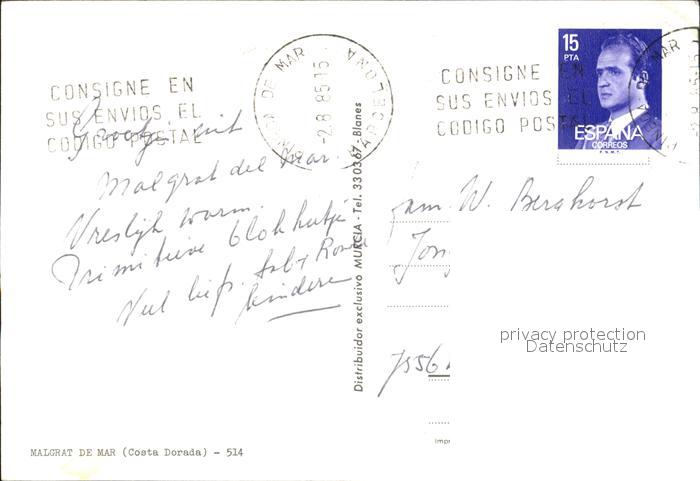 CONSIGNE EN
SUS ENVIOS EL
CODIGO POSTAL
DE MAR
-2.8.85 15
BARCELONA
CONSIGNE EN
SUS ENVIOS EL
CODIGO POSTAL
15
PTA
ESPAÑA
CORREOS
F.N.M.T.
DE MAR
Groetjes uit
Malgrat del Mar.
Vreslijk warm.
Primitieve blokhutje
Veel liefs. Ab + 
kinderen
Distribuidor exclusivo MURCIA - Tel. 330367 - Blanes
Fam. W. Berghorst
Jon
7556
privacy protection
Datenschutz
Impr
MALGRAT DE MAR (Costa Dorada) - 514